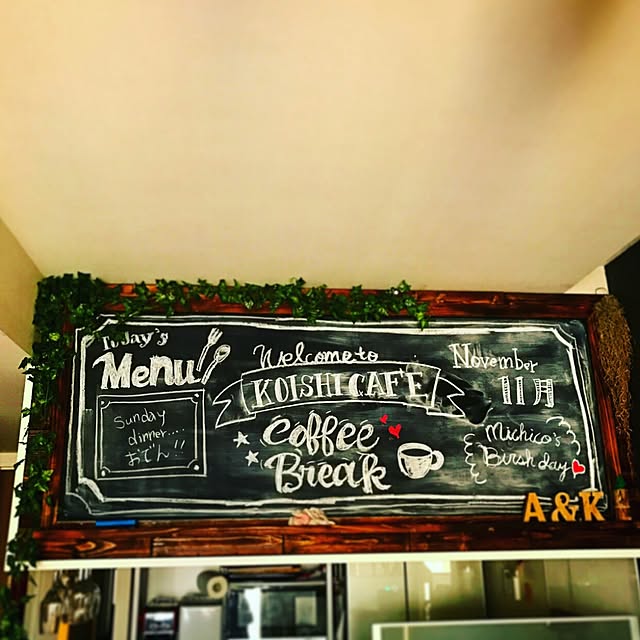 Today's
Menu
Sunday
dinner....
おでん!!
Welcome to
KOISHI CAFE
Coffee
Break
November
11月
Michico's
Birthday
A&K